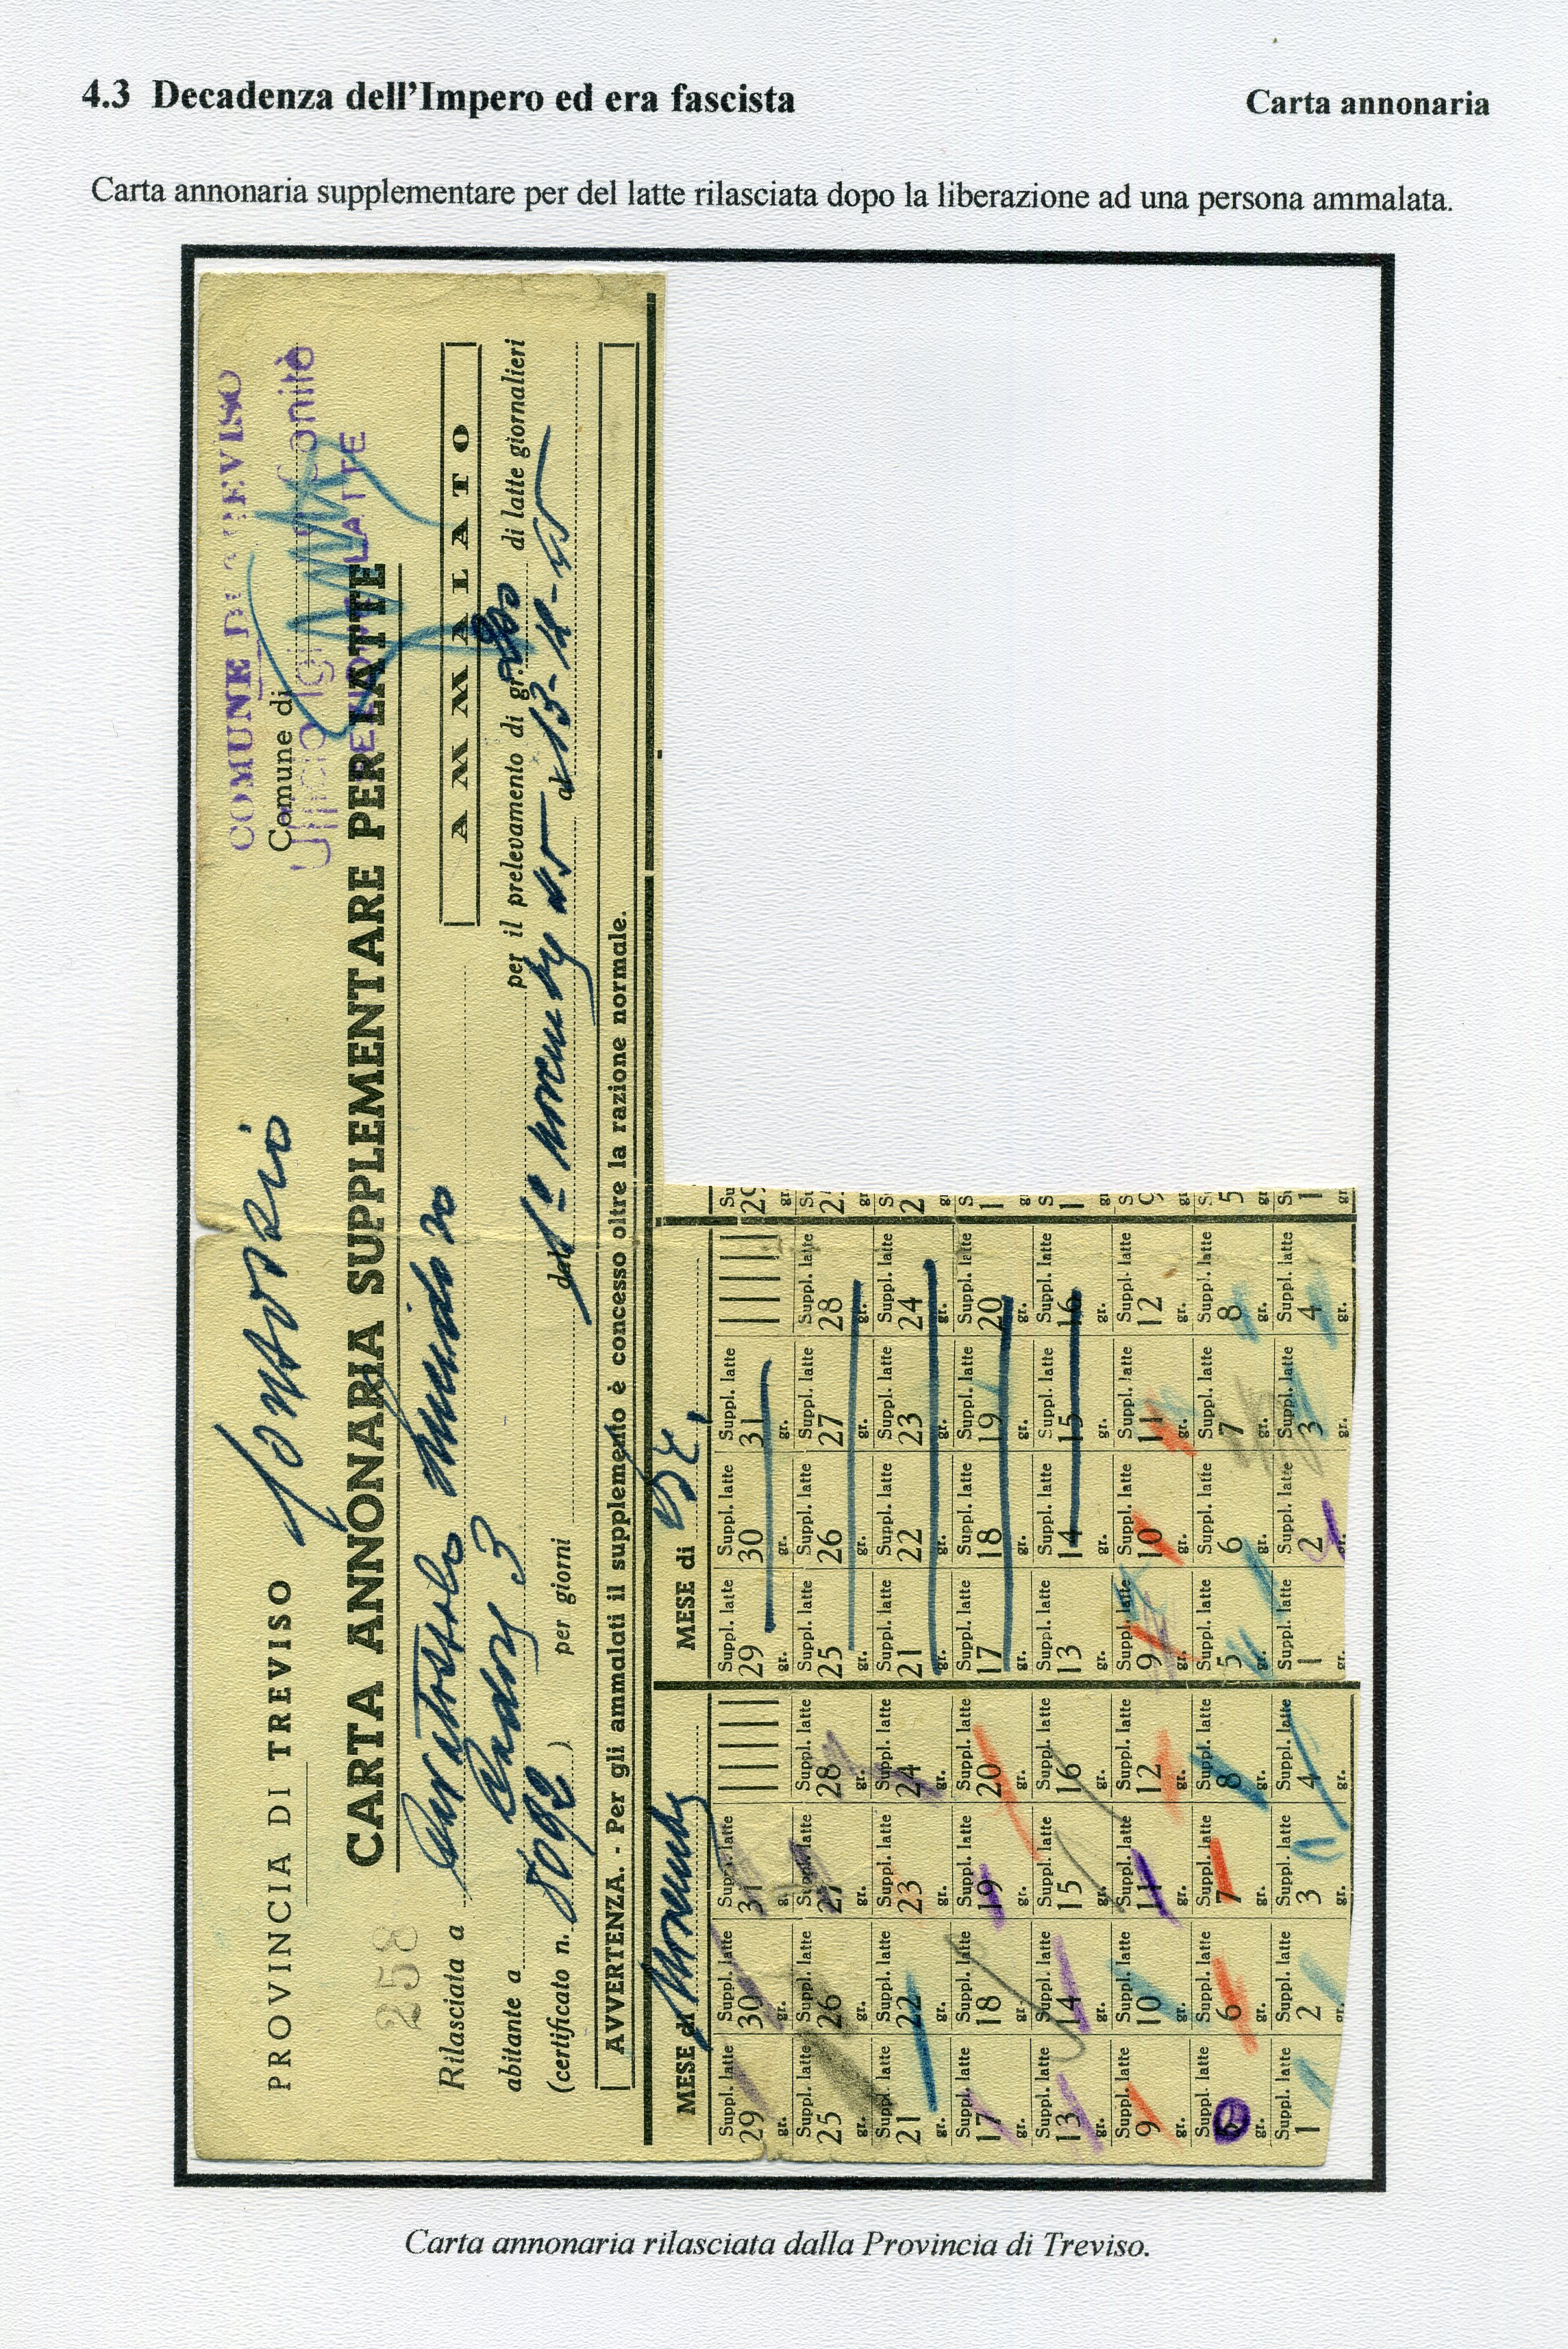 4.3 Decadenza dell'Impero ed era fascista
Carta annonaria
Carta annonaria supplementare per del latte rilasciata dopo la liberazione ad una persona ammalata.
PROVINCIA DI TREVISO
COMUNE DI TREVISO
Comune di
LATTE
CARTA ANNONARIA SUPPLEMENTARE PER LATTE
258
AMMALATO
Rilasciata a
abitante a 3
per il prelevamento di gr. di latte giornalieri
(certificato n. 8092) per giorni dal 1° novembre 45 al 13-12-45
AVVERTENZA. - Per gli ammalati il supplemento è concesso oltre la razione normale.
MESE di Novembre
Suppl. latte 29 gr. Suppl. latte 30 gr. Suppl. latte 31 gr.
Suppl. latte 25 gr. Suppl. latte 26 gr. Suppl. latte 27 gr. Suppl. latte 28 gr.
Suppl. latte 21 gr. Suppl. latte 22 gr. Suppl. latte 23 gr. Suppl. latte 24 gr.
Suppl. latte 17 gr. Suppl. latte 18 gr. Suppl. latte 19 gr. Suppl. latte 20 gr.
Suppl. latte 13 gr. Suppl. latte 14 gr. Suppl. latte 15 gr. Suppl. latte 16 gr.
Suppl. latte 9 gr. Suppl. latte 10 gr. Suppl. latte 11 gr. Suppl. latte 12 gr.
Suppl. latte 5 gr. Suppl. latte 6 gr. Suppl. latte 7 gr. Suppl. latte 8 gr.
Suppl. latte 1 gr. Suppl. latte 2 gr. Suppl. latte 3 gr. Suppl. latte 4 gr.
MESE di
Suppl. latte 29 gr. Suppl. latte 30 gr. Suppl. latte 31 gr.
Suppl. latte 25 gr. Suppl. latte 26 gr. Suppl. latte 27 gr. Suppl. latte 28 gr.
Suppl. latte 21 gr. Suppl. latte 22 gr. Suppl. latte 23 gr. Suppl. latte 24 gr.
Suppl. latte 17 gr. Suppl. latte 18 gr. Suppl. latte 19 gr. Suppl. latte 20 gr.
Suppl. latte 13 gr. Suppl. latte 14 gr. Suppl. latte 15 gr. Suppl. latte 16 gr.
Suppl. latte 9 gr. Suppl. latte 10 gr. Suppl. latte 11 gr. Suppl. latte 12 gr.
Suppl. latte 5 gr. Suppl. latte 6 gr. Suppl. latte 7 gr. Suppl. latte 8 gr.
Suppl. latte 1 gr. Suppl. latte 2 gr. Suppl. latte 3 gr. Suppl. latte 4 gr.
Carta annonaria rilasciata dalla Provincia di Treviso.